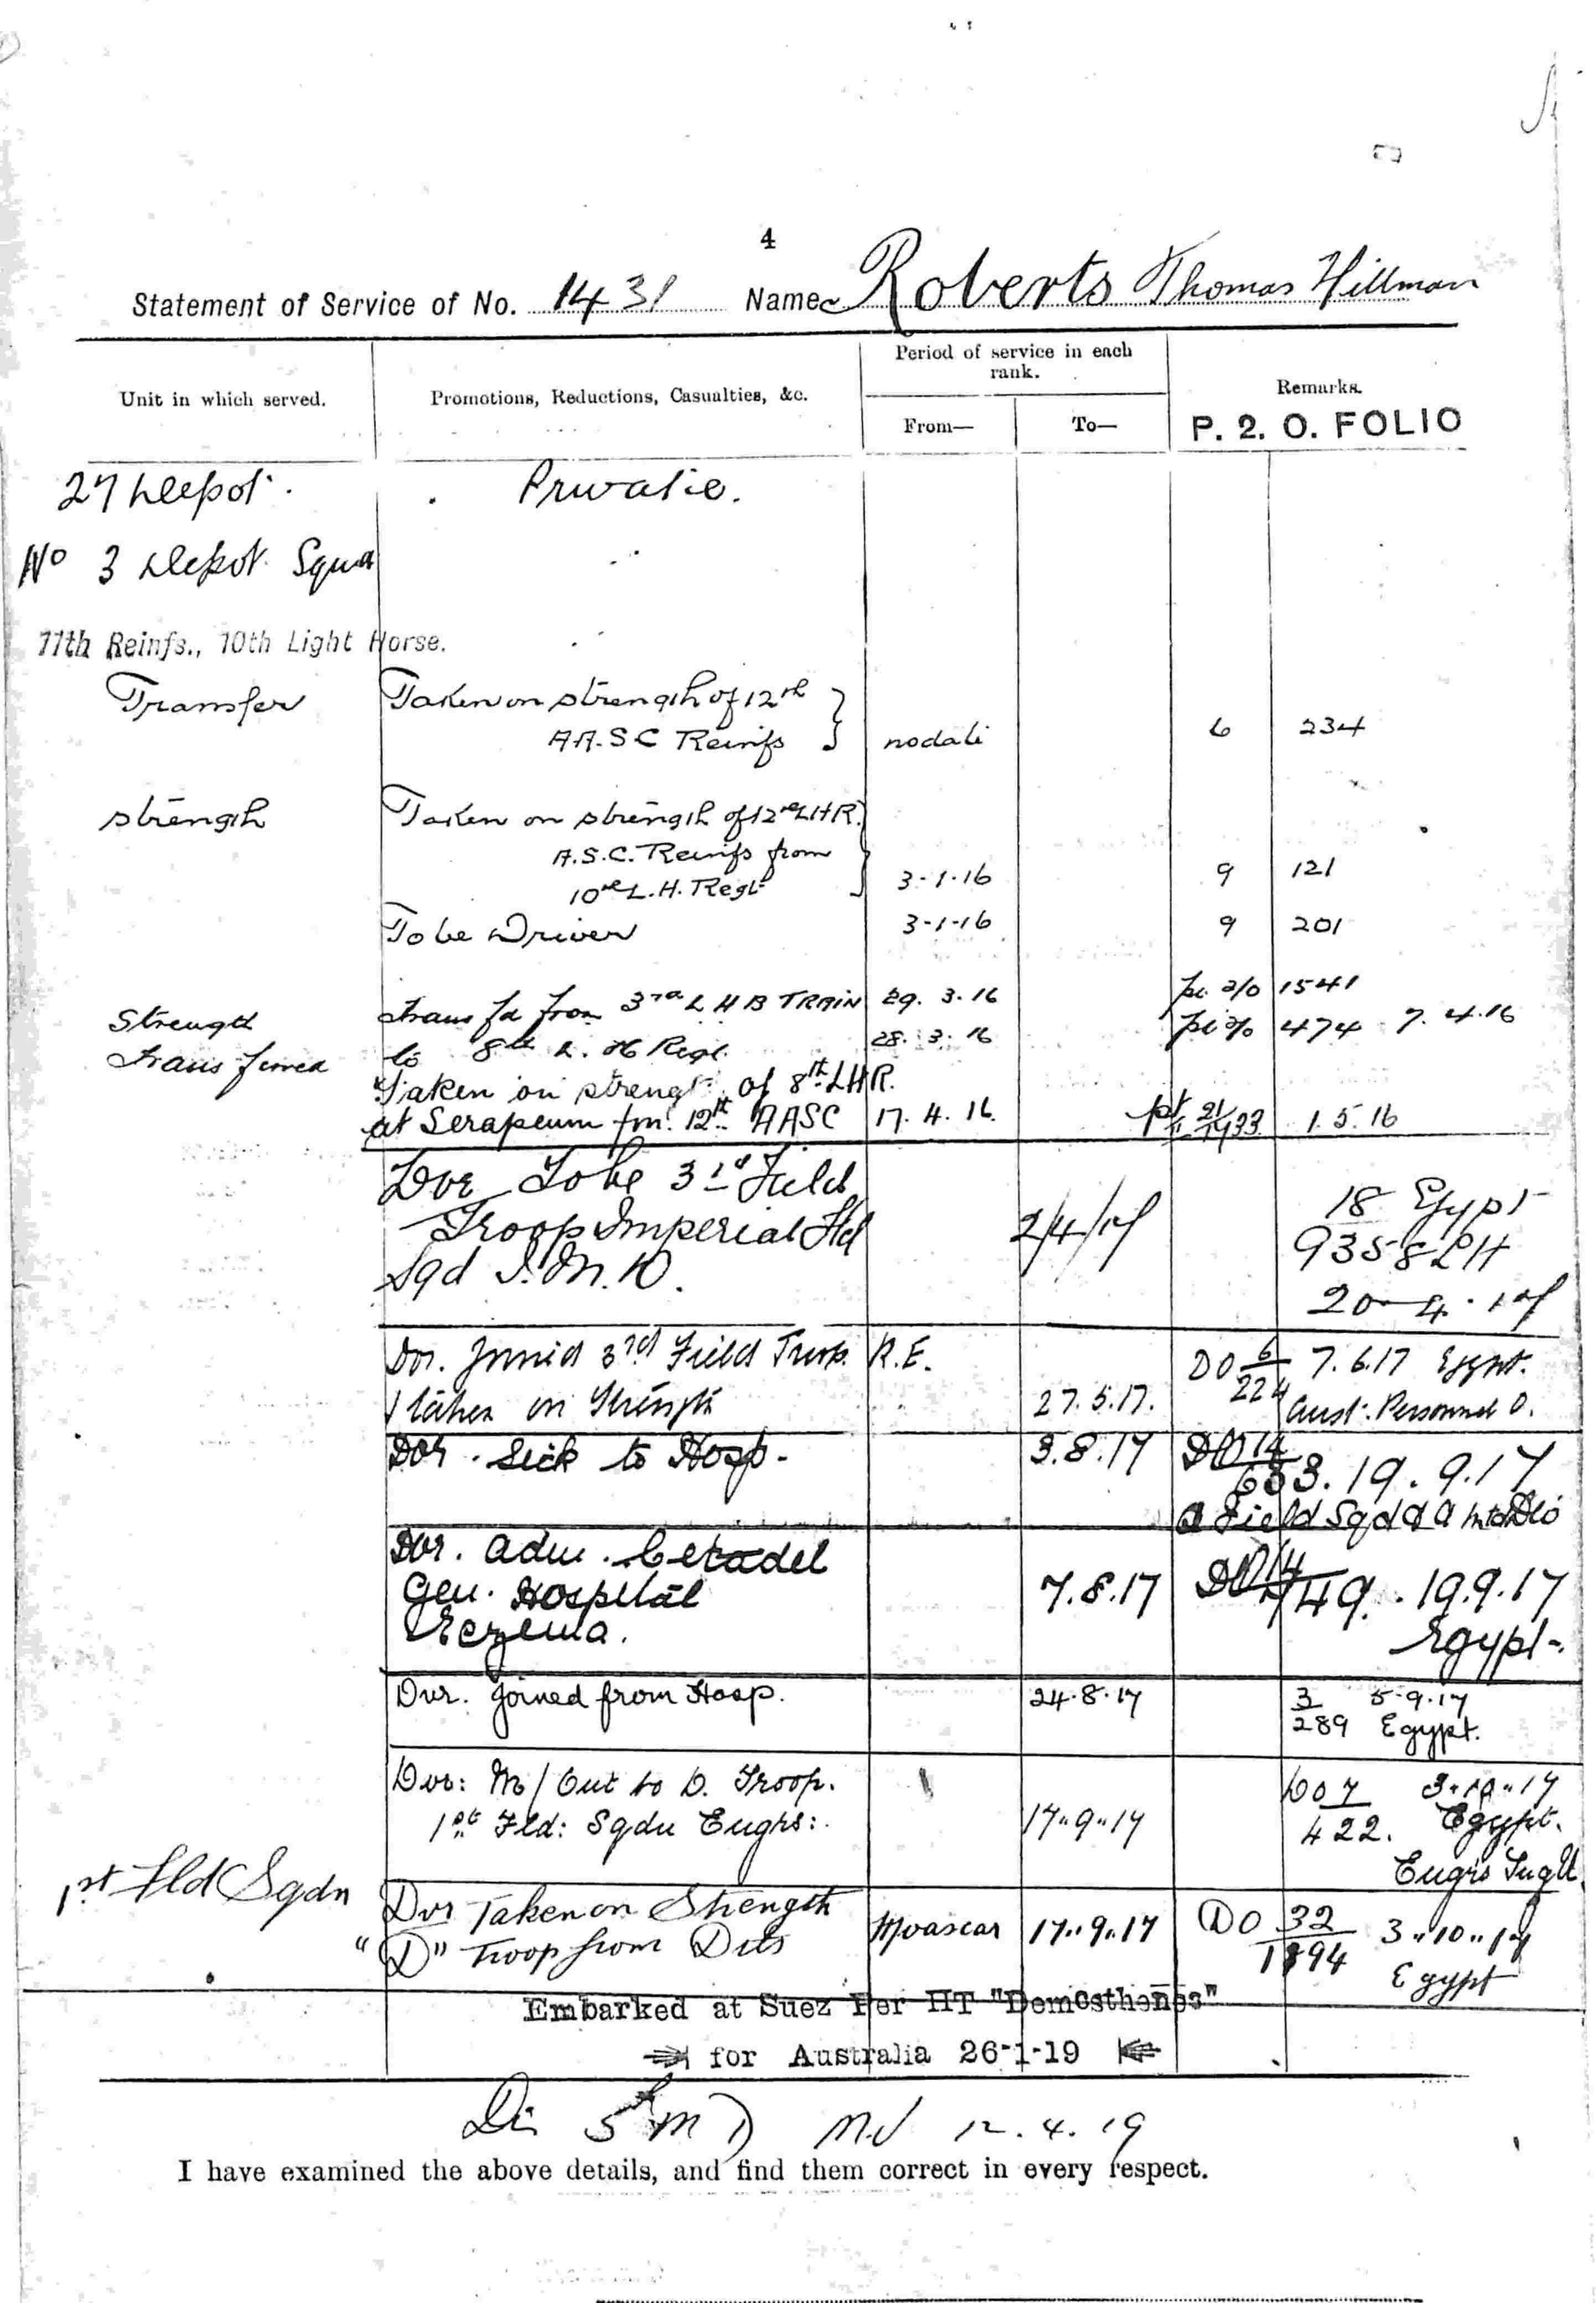 4
Statement of Service of No. 1431 Name Roberts Thomas Hillman
Unit in which served.
Promotions, Reductions, Casualties, &c.
Period of service in each rank.
From—
To—
Remarks.
P. 2. O. FOLIO
27 Depot. Private.
No 3 Depot Squa
11th Reinfs., 10th Light Horse.
Transfer Taken on strength of 12th
A.A.S C Reinfs nodate 6 234
strength Taken on strength of 12th LHR.
A.S.C. Reinfs from
10th L.H. Regt 3-1-16 9 121
To be Driver 3-1-16 9 201
Strength Transfd from 3rd L H B TRAIN 29. 3. 16 1541
transferred to 8th L. H Regt. 28. 3. 16 474 7. 4. 16
Taken on strength of 8th LHR.
at Serapeum fm. 12th AASC 17. 4. 16. 1. 5. 16
Dvr To be 3rd Field
Troop Imperial Fld
Sqd 2/4/17
18 Egypt
9358 LH
20-4.17
Dvr. Joined 3rd Field Troop. R.E. DO 6/224 7.6.17 Egypt.
taken on Strength 27.5.17. Aust. Personnel O.
Dvr. Sick to Hosp. 3.8.17 DO 14/633. 19.9.17
Field Sqd
Dvr. adm. Citadel
Gen. Hospital 7.8.17 DO 14/749. 19.9.17
Eczema. Egypt.
Dvr. Joined from Hosp. 24.8.17 3/289 5.9.17
Egypt.
Dvr: M/Out to D. Troop. DO 7/422. 3"10"17
1st Fld: Sqdn Engrs: 17"9"17 Egypt.
Engrs
1st Fld Sqdn Dvr Taken on Strength
"D" Troop from Dets Moascar 17"9"17 DO 32/1894 3"10"17
Egypt
Embarked at Suez Per HT "Demosthenes"
for Australia 26-1-19
Dis 5 M D 12.4.19
I have examined the above details, and find them correct in every respect.